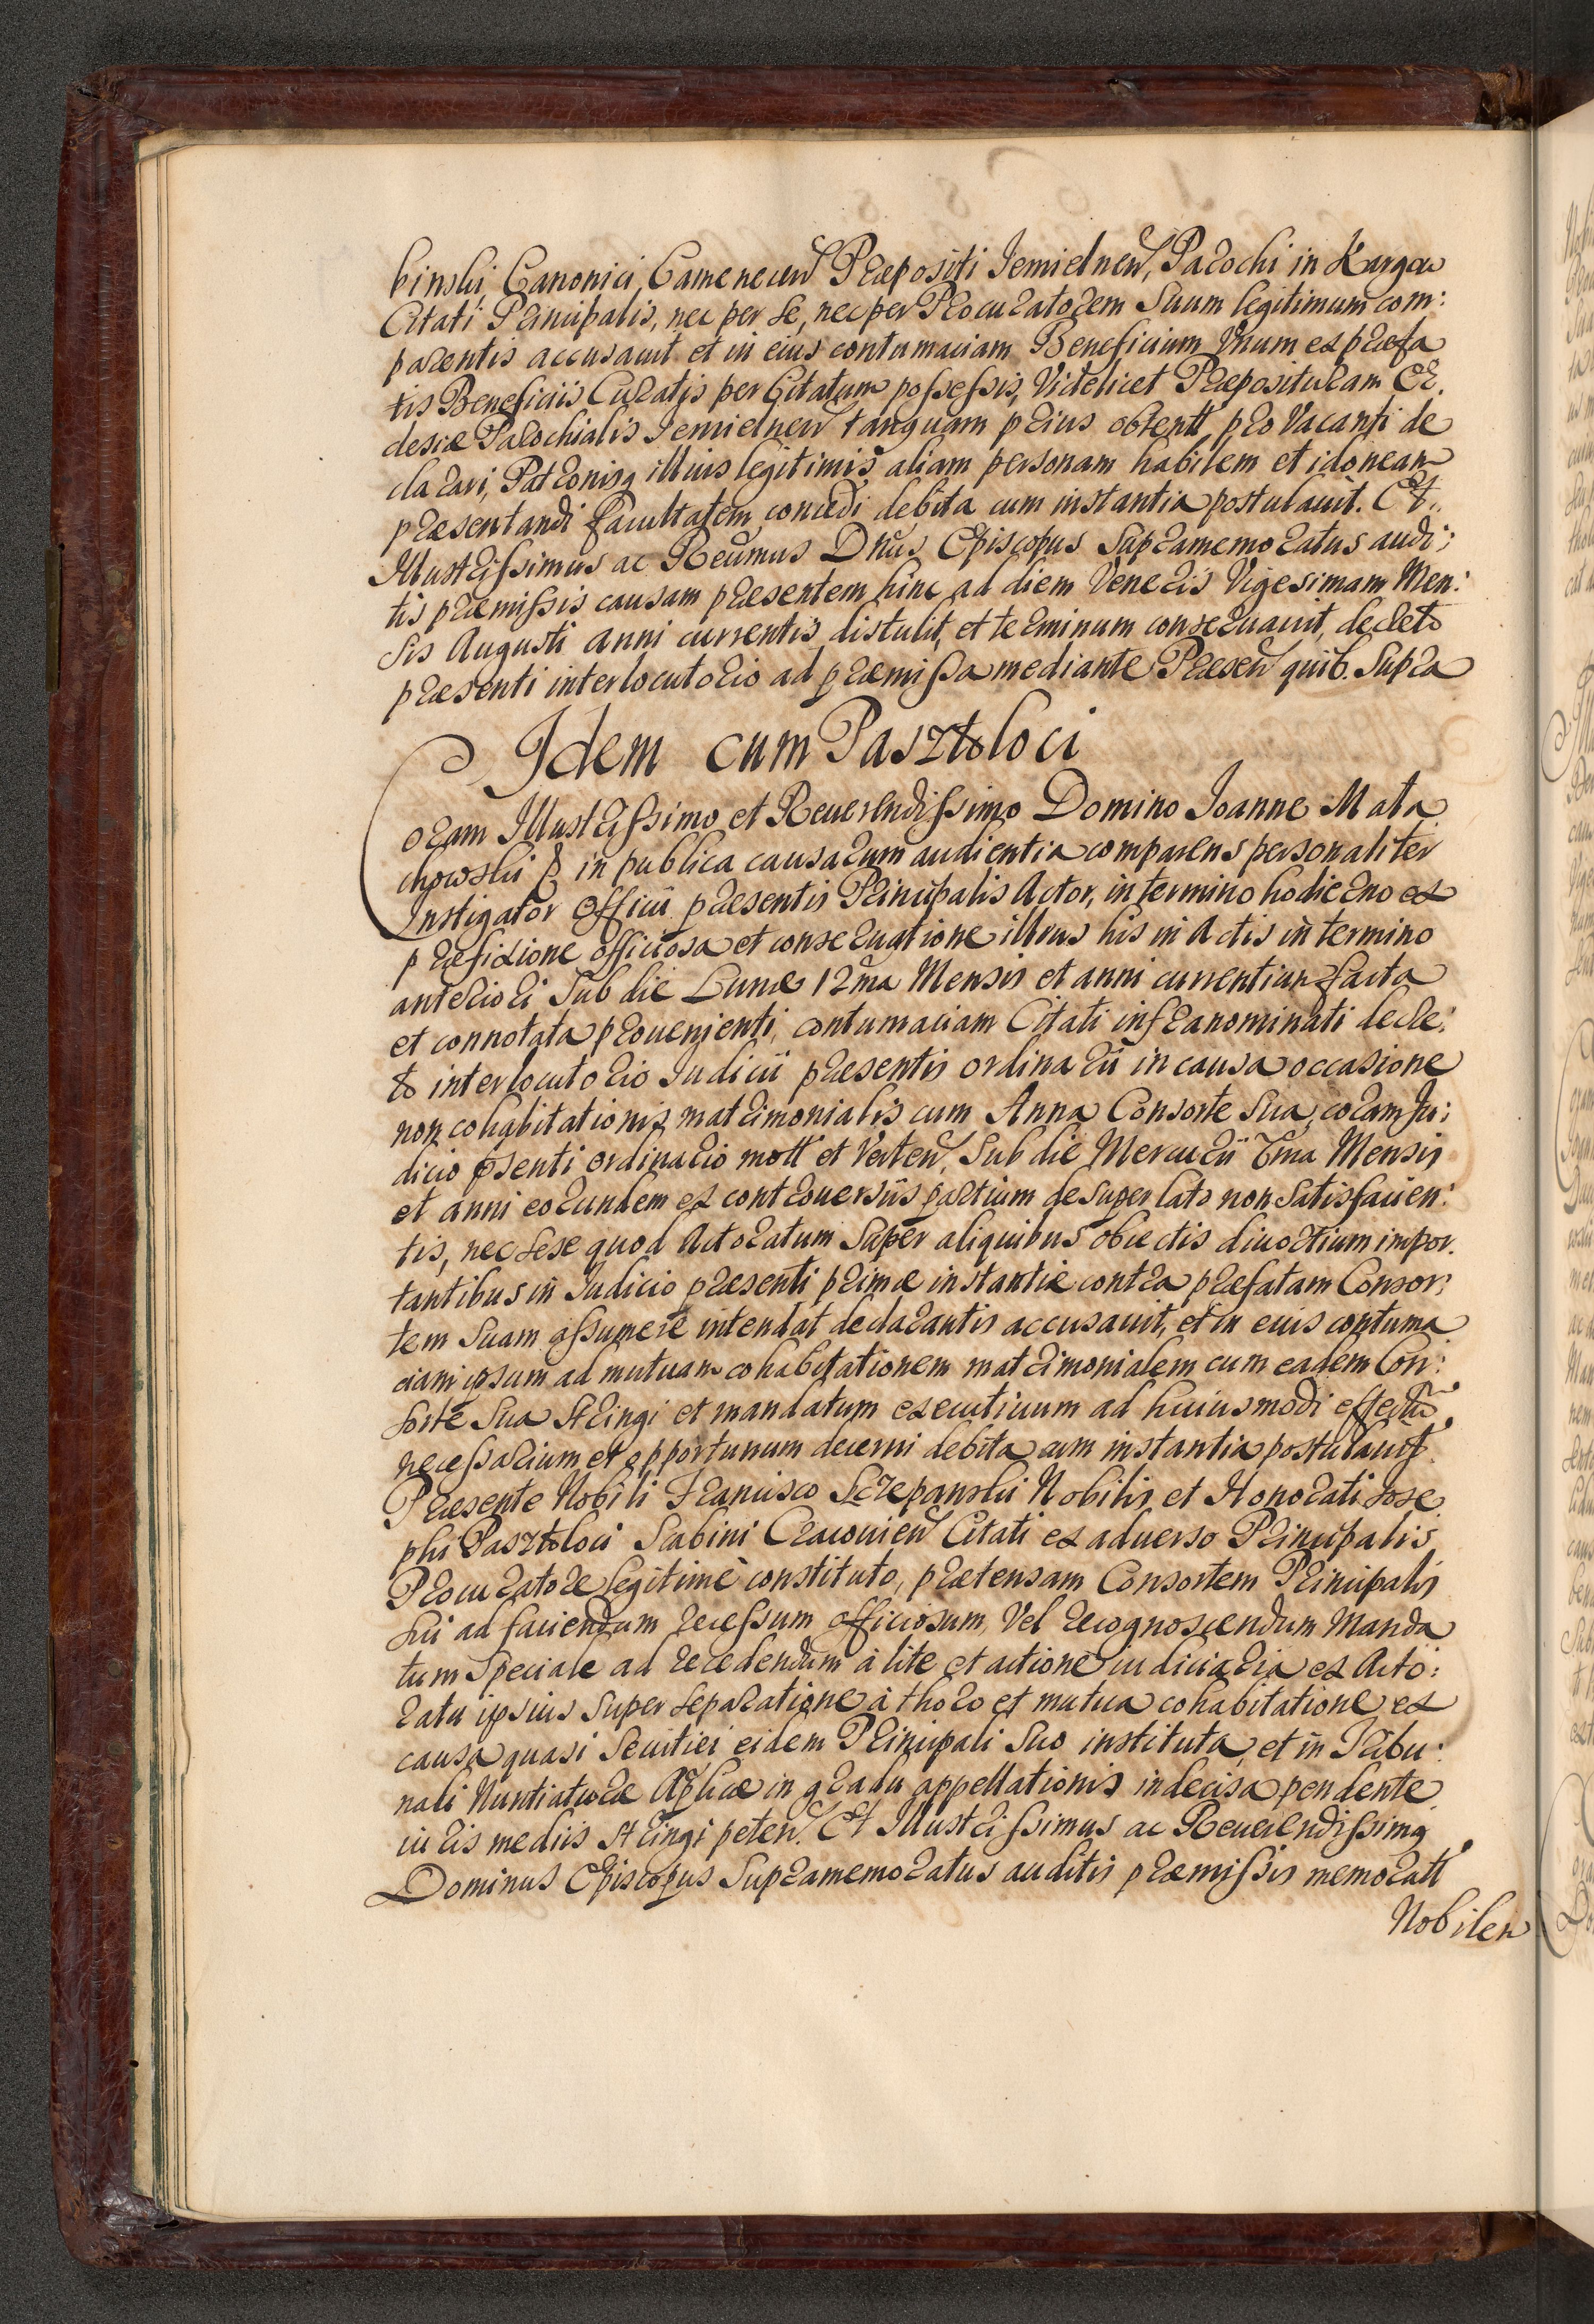 binski Canonici Camenecen Præpositi Jemielnen, Parochi in Kargow
Citati Principalis, nec per se, nec per Procuratorem Suum legitimum com:
parentis accusauit et in eius contumaciam Beneficium Vnum ex præfa
tis Beneficiis Curatis per Citatum possessis, Videlicet Præposituram Ec.
clesiæ Parochialis Jemielnen tanquam prius obtentt pro Vacanti de
clarari, Patronisq illius legitimis aliam personam habilem et idoneam
præsentandi facultatem concedi debita cum instantia postulauit. Et
Illustrissimus ac Reūmus Dnūs Episcopus Supramemoratus audi:
tis præmissis causam præsentem hinc ad diem Veneris Vigesimam Men:
sis Augusti anni currentis distulit, et terminum conseruauit, decreto
præsenti interlocutorio ad præmissa mediante Præsen quib. Supra
Idem cum Pasztoloci
Coram Illustrissimo et Reuerendissimo Domino Joanne Mała
chowski in publica causarum audientia comparens personaliter
Instigator Officii præsentis Principalis Actor, in termino hodierno ex
præfixione officiosa et conseruatione illius his in Actis in termino
anteriori Sub die Lunæ 12ma Mensis et anni currentium facta
et connotata prouenienti, contumaciam Citati infranominati decre:
to interlocutorio Judicii præsentis ordinarii in causa occasione
non cohabitationis matrimonialis cum Anna Consorte Sua, coram Ju:
dicio psenti ordinario mott et Verten, Sub die Mercurii 7ma Mensis
et anni eorundem ex controuersiis partium desuper lato non Satisfacien:
tis, nec sese quod Actoratum Super aliquibus obiectis diuortium impor.
tantibus in Judicio præsenti primæ instantiæ contra præfatam Consor:
tem Suam assumere intendat declarantis accusauit, et in euis contuma
ciam ipsum ad mutuam cohabitationem matrimonialem cum eadem Con:
sorte Sua Stringi et mandatum executiuum ad huiusmodi effectū
necessarium et opportunum decerni debita cum instantia postulauit.
Præsente Nobili Francisco Sczepanski Nobilis et Honorati Jose
phi Pasztoloci Scabini Cracouien Citati ex aduerso Principalis
Procuratore legitimè constituto, prætensam Consortem Principalis
Sui ad faciendum recessum officiosum, Vel recognoscendum Manda
tum Speciale ad recedendum à lite et actione iudiciaria ex Acto:
ratu ipsius Super separatione à thoro et mutua cohabitatione ex
causa quasi Seuitiei eidem Principali Suo instituta, et in Tribu:
nali Nuntiaturæ Apliæ in gradu appellationis indecisa pendente
iuris mediis Stringi peten. Et Illustrissimus ac Reuerendissimq
Dominus Episcopus Supramemoratus auditis præmissis memoratt
Nobilem